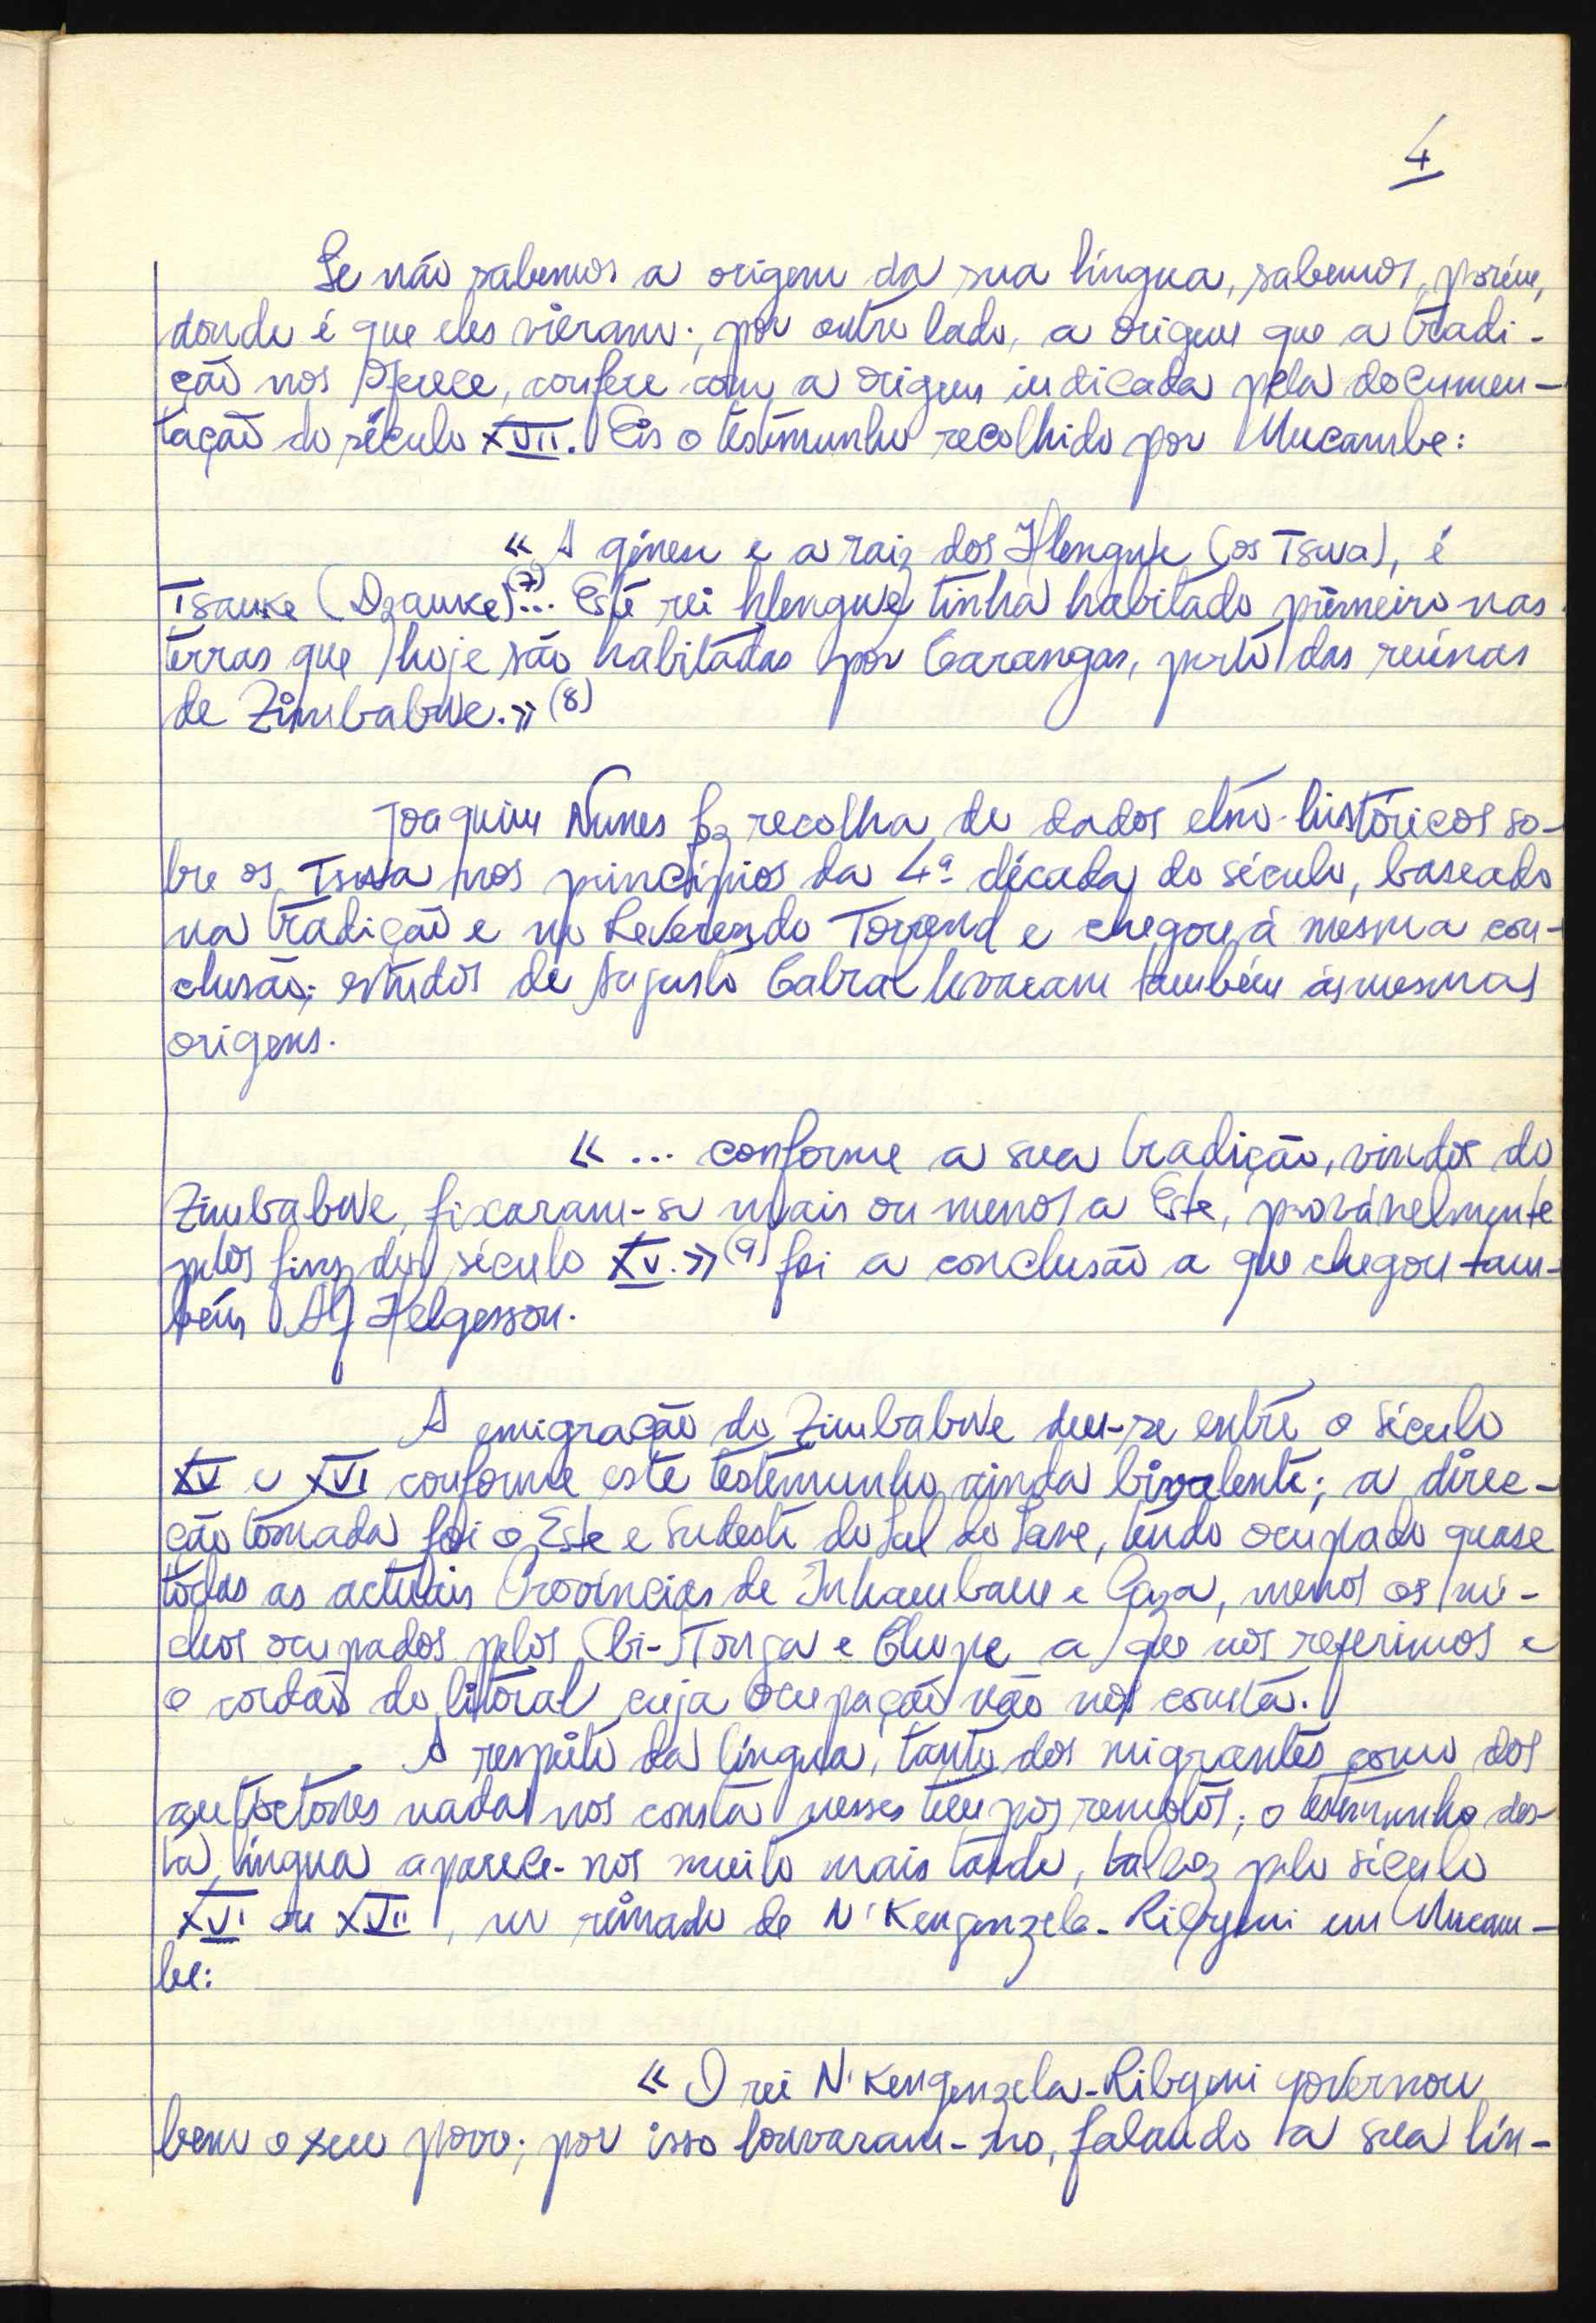 4
Se não sabemos a origem da sua língua, sabemos, porém,
donde é que eles vieram; por outro lado, a origem que a tradi-
ção nos oferece, confere com a origem indicada pela documen-
tação do século XVII. Eis o testemunho recolhido por Mucambe:
« A génese e a raiz dos Hlengwe (os Tswa), é
Tsauke (Dzauke)(7)... Este rei hlengwe tinha habitado primeiro nas
terras que hoje são habitadas por Carangas, perto das ruínas
de Zimbabwe.» (8)
Joaquim Nunes fez recolha de dados etno-históricos so-
bre os Tswa nos princípios da 4ª década do século, baseado
na tradição e no Reverendo Torrend e chegou à mesma con-
clusão; estudos de Augusto Cabral levaram também às mesmas
origens.
« ... conforme a sua tradição, vindos do
Zimbabwe, fixaram-se mais ou menos a Este, provávelmente
pelos fins do século XV.» (9) foi a conclusão a que chegou tam-
bém Alf Helgesson.
A emigração do Zimbabwe deu-se entre o século
XV e XVI conforme este testemunho ainda bivalente; a direc-
ção tomada foi o Este e Sudeste do Sul do Save, tendo ocupado quase
todas as actuais Províncias de Inhambane e Gaza, menos os ni-
chos ocupados pelos Bi-Tonga e Chope a que nos referimos e
o cordão do litoral cuja ocupação não nos consta.
A respeito da língua, tanto dos migrantes como dos
autóctones nada nos consta nesses tempos remotos; o testemunho des-
ta língua aparece-nos muito mais tarde, talvez pelo século
XVI ou XVII, no reinado de N'Kengenzela-Ribyeni em Mucam-
be:
« O rei N'Kengenzela-Ribyeni governou
bem o seu povo; por isso louvaram-no, falando a sua lín-